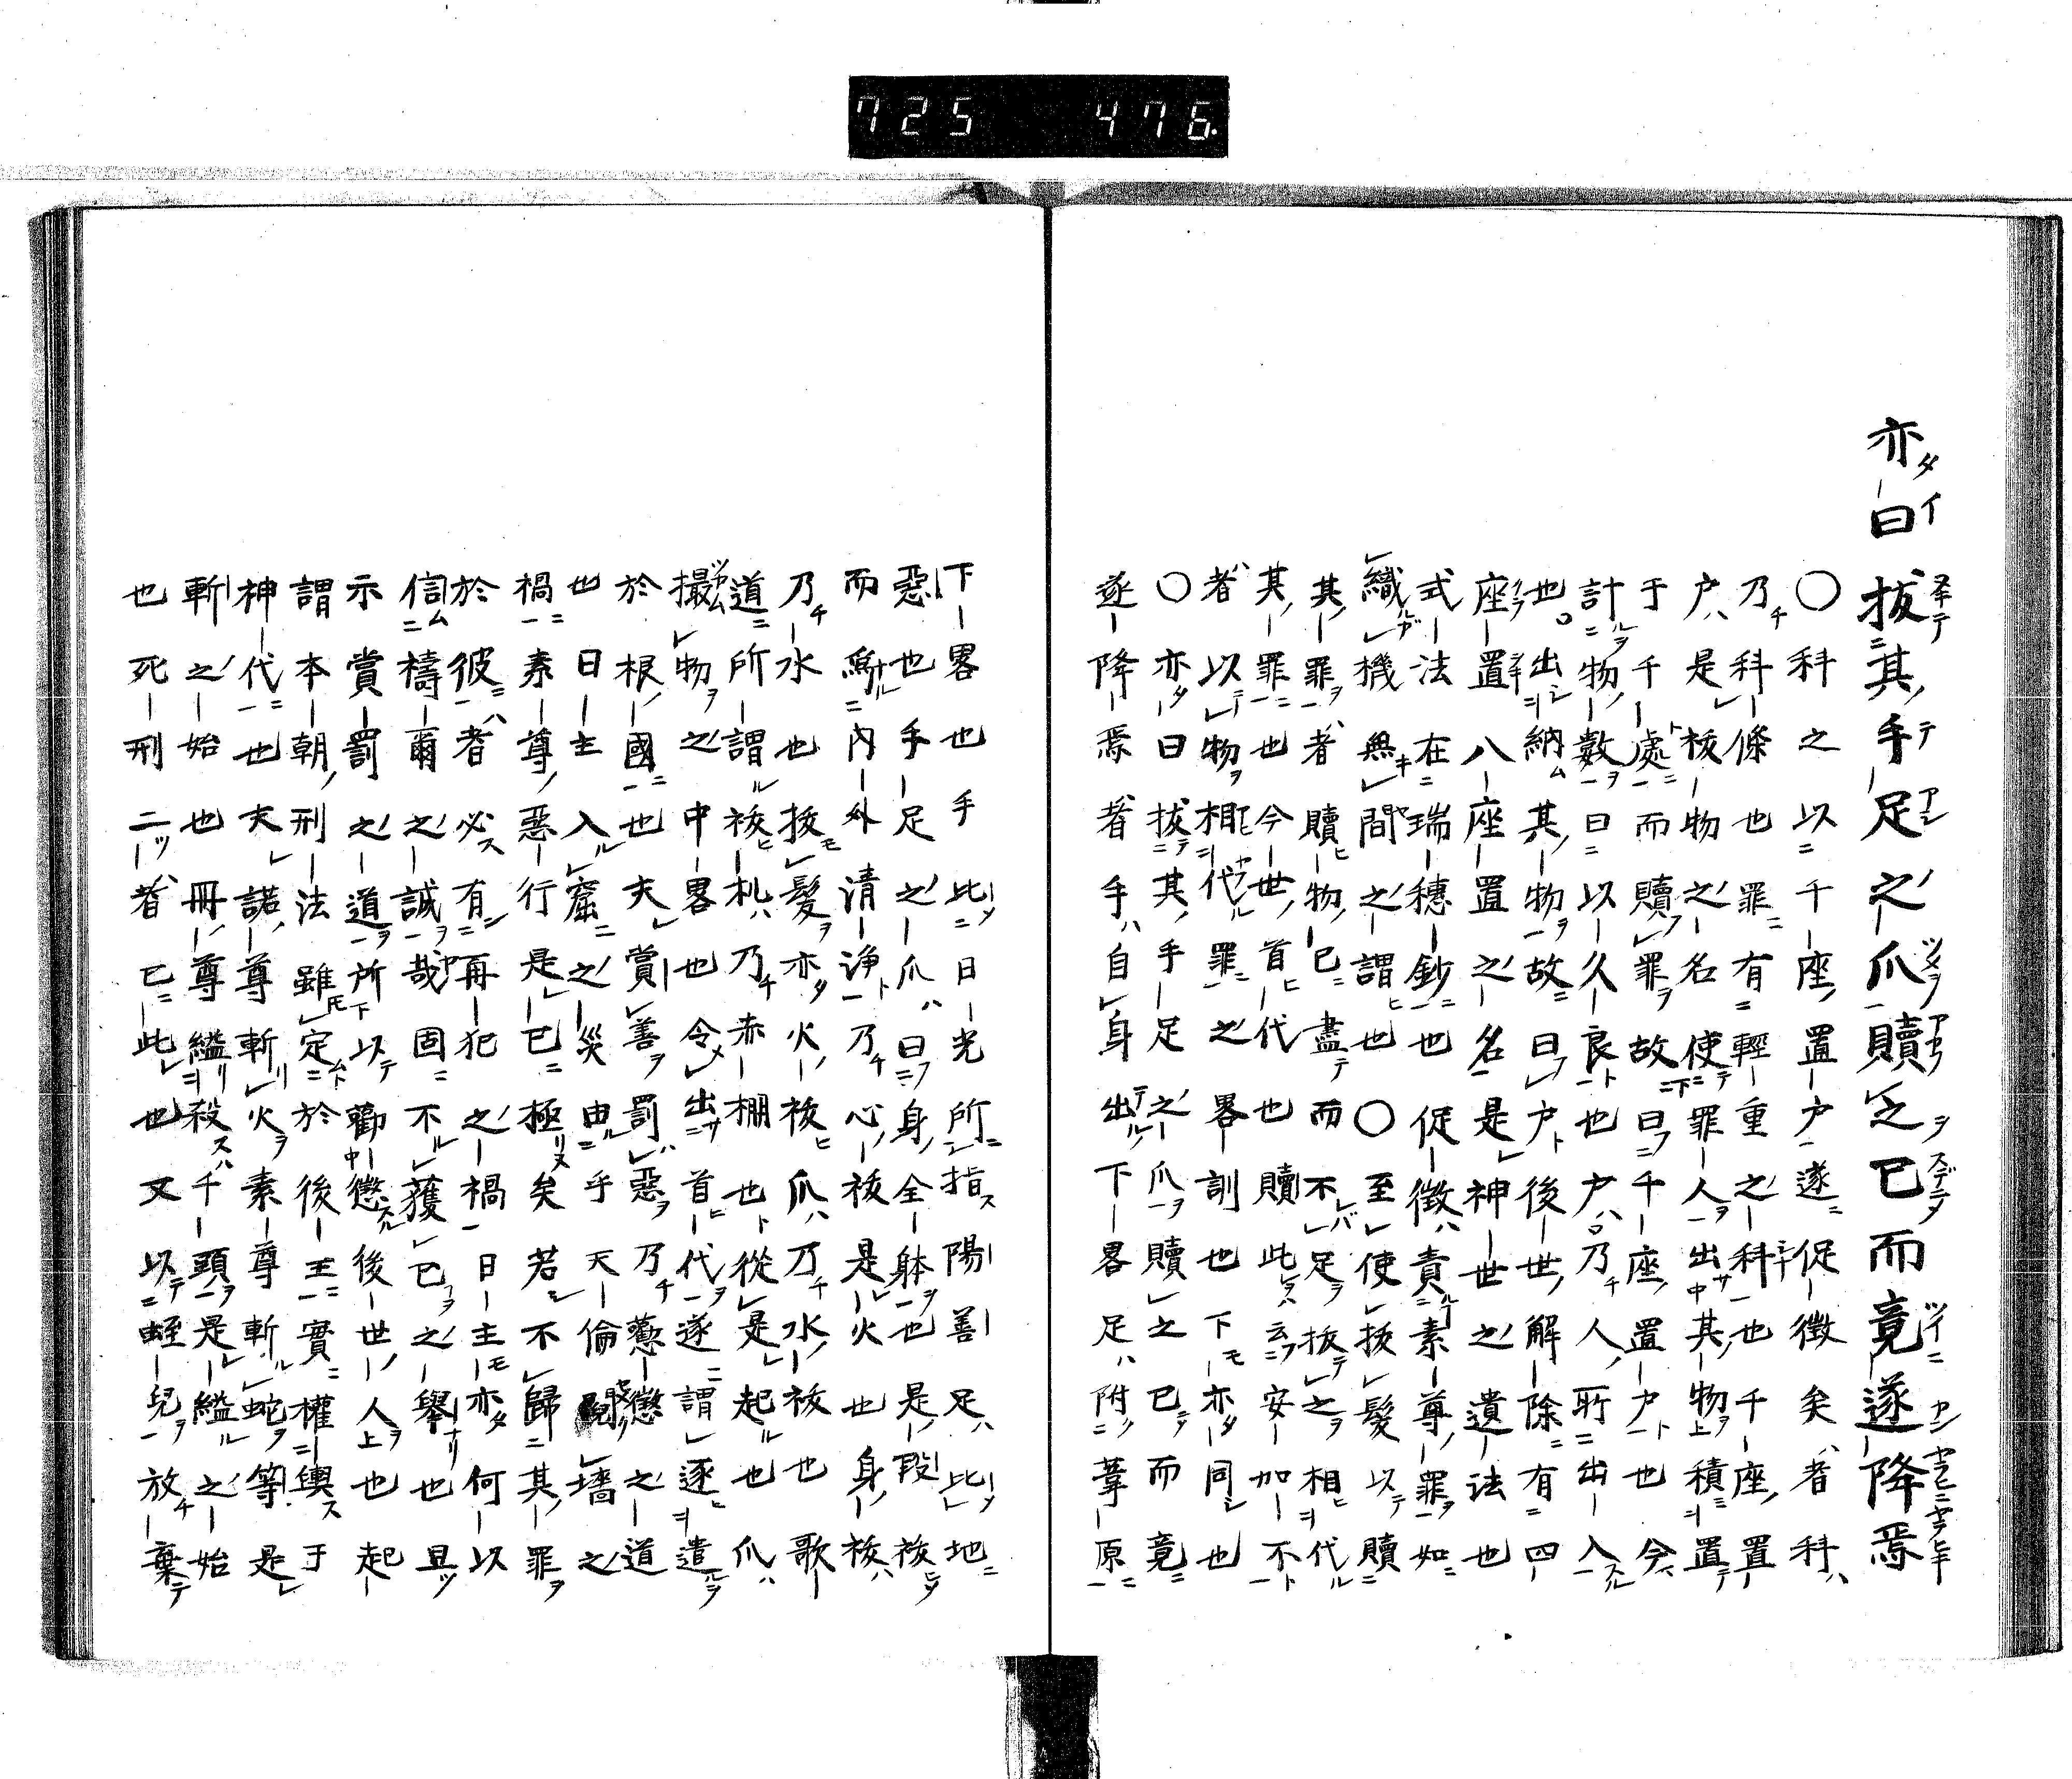 725 476.
亦曰拔其手足之爪贖之已而竟遂降焉
〇科之以千座置户遂促徴矣者科
乃科條也罪有輕重之科也千座置
户是秡物之名使罪人出其物積置
于千處而贖罪故曰千座置户也今
計物數曰以久良也户乃人所出入
也出納其物故曰户後世解除有四
座置八座置之名是神世之遺法也
式法在瑞穗鈔也促徴責素尊罪如
織機無間之謂也〇至使拔髮以贖
其罪者贖物已盡而不足拔之相代
其罪也今世首代也贖此云安加不
者以物相代罪之畧訓也下亦同也
〇亦曰拔其手足之爪贖之已而竟
遂降焉者手自身出下畧足附葦原
下畧也手此日光所指陽善足此地
惡也手足之爪曰身全躰也是段秡
而爲内外清淨乃心秡是火也身秡
乃水也拔髮亦火秡爪乃水秡也歌
道所謂秡札乃赤棚也從是起也爪
撮物之中畧也令出首代遂謂逐遣
於根國也夫賞善罰惡乃懲之道
也日主入窟之災由乎天倫鬩墻之
禍素尊惡行是已極矣若不歸其罪
於彼者必有再犯之禍日主亦何以
信禱爾之誠哉固不獲已之舉也且
示賞罰之道所以勸懲後世人也起
謂本朝刑法雖定於後王實權輿于
神代也夫諾尊斬火素尊斬蛇等是
斬之始也冊尊縊殺千頭是縊之始
也死刑二者已此也又以蛭兒放棄